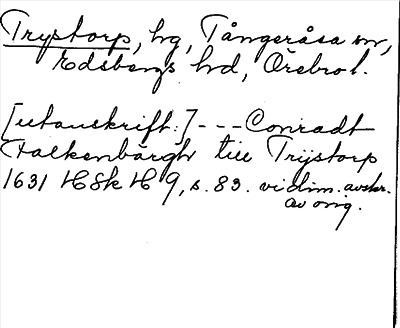 Trystorp, hg, Tångeråsa sn,
Edsbergs hd, Örebro l.
[utanskrift:] - - - Conradt
Falkenbärgh till Trÿstorp
1631 HSk H 9, s. 83. vidim. avskr.
av orig.